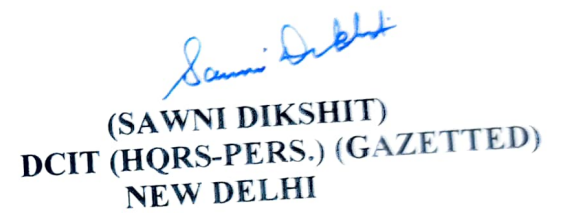 Sawni Dikshit
(SAWNI DIKSHIT)
DCIT (HQRS-PERS.) (GAZETTED)
NEW DELHI